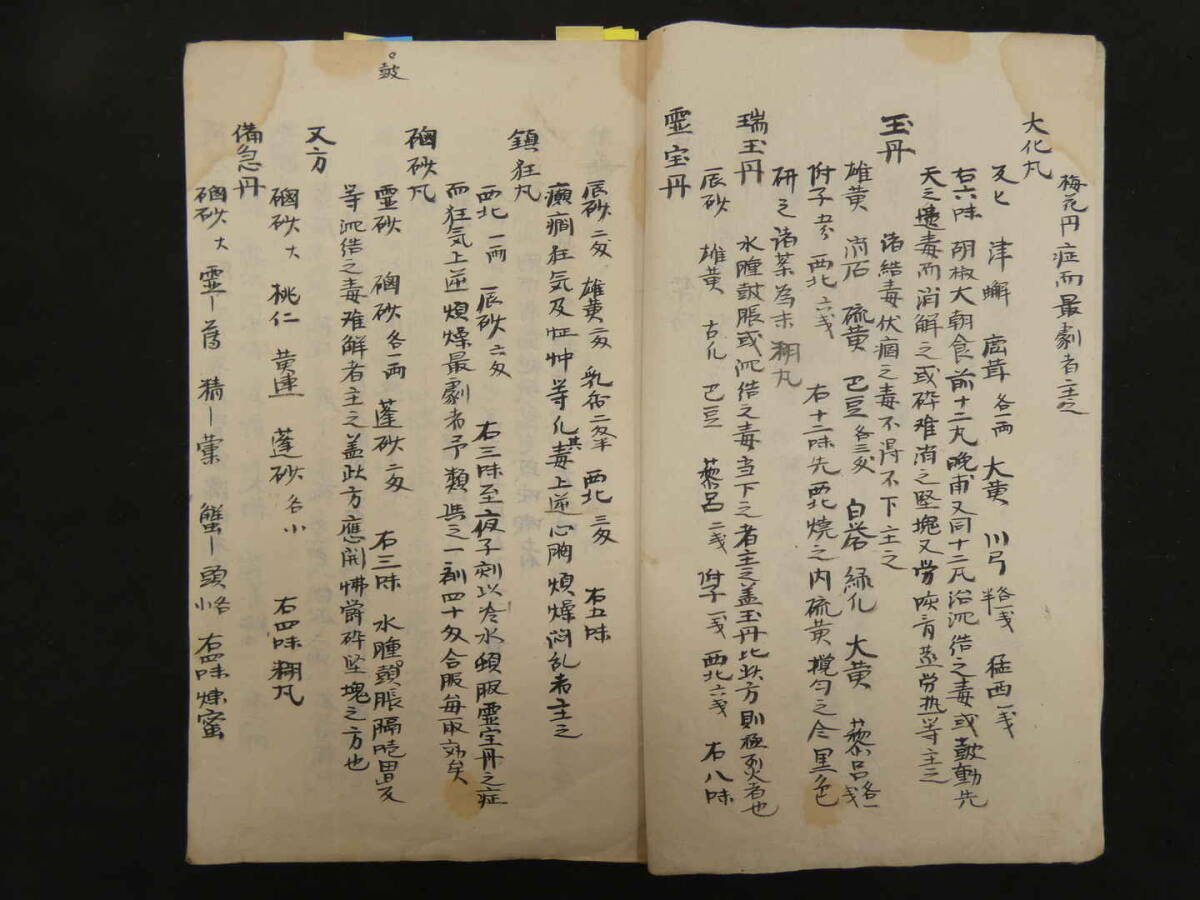 梅花丹症而最劇者主之
大化丸
反ヒ 津蟹 鹿茸各一両 大黄 川弓 各半戔 猛西一戔
右六味 胡椒大朝食前十二丸晩甫又同十二丸治沉結之毒或鼓動先
天之遺毒而消解之或砕难消之堅塊又労咳骨蒸労热等主之
玉丹
諸結毒伏痼之毒不得不下主之
雄黄 消石 硫黄 巴豆各三匁 白礬 緑化 大黄 藜呂各一戔
附子 西北六戔 右十二味先西北焼之内硫黄攪匀之令黒色
研之諸薬為末糊丸
瑞玉丹
水腫鼓脹或沉结之毒当下之者主之盖玉丹比此方則極烈者也
辰砂 雄黄 古化 巴豆 藜呂二戔 附子一戔 西北六戔 右八味
霊宝丹
辰砂二匁 雄黄二匁 乳香二匁半 西北三匁 右五味
癲癇狂気及怔忡等化毒上逆心胸煩燥悶乱者主之
鎮狂丸
西北一両 辰砂六匁 右三味至夜子刻以冷水頓服霊宝丹之症
而狂气上逆煩燥最劇者予類与之一剤四十匁合服毎取効矣
硇砂丸
霊砂 硇砂各一両 蓬砂二匁 右三味 水腫鼓脹膈噎胃反
等沉结之毒难解者主之盖此方應開怫欝砕堅塊之方也
鼓
又方
硇砂大 桃仁 黄連 蓬砂各小 右四味糊丸
備急丹
硇砂大 霊ー 猜ー 蟹ー頭 各小 右四味煉蜜